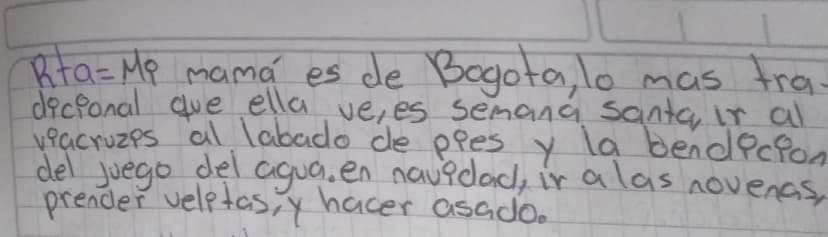 Rta= Mi mamá es de Bogota, lo mas tra-
dicional que ella ve, es semana santa, ir al
viacruzis al labado de pies y la bendicion
del juego del agua. en navidad, ir a las novenas,
prender velitas, y hacer asado.